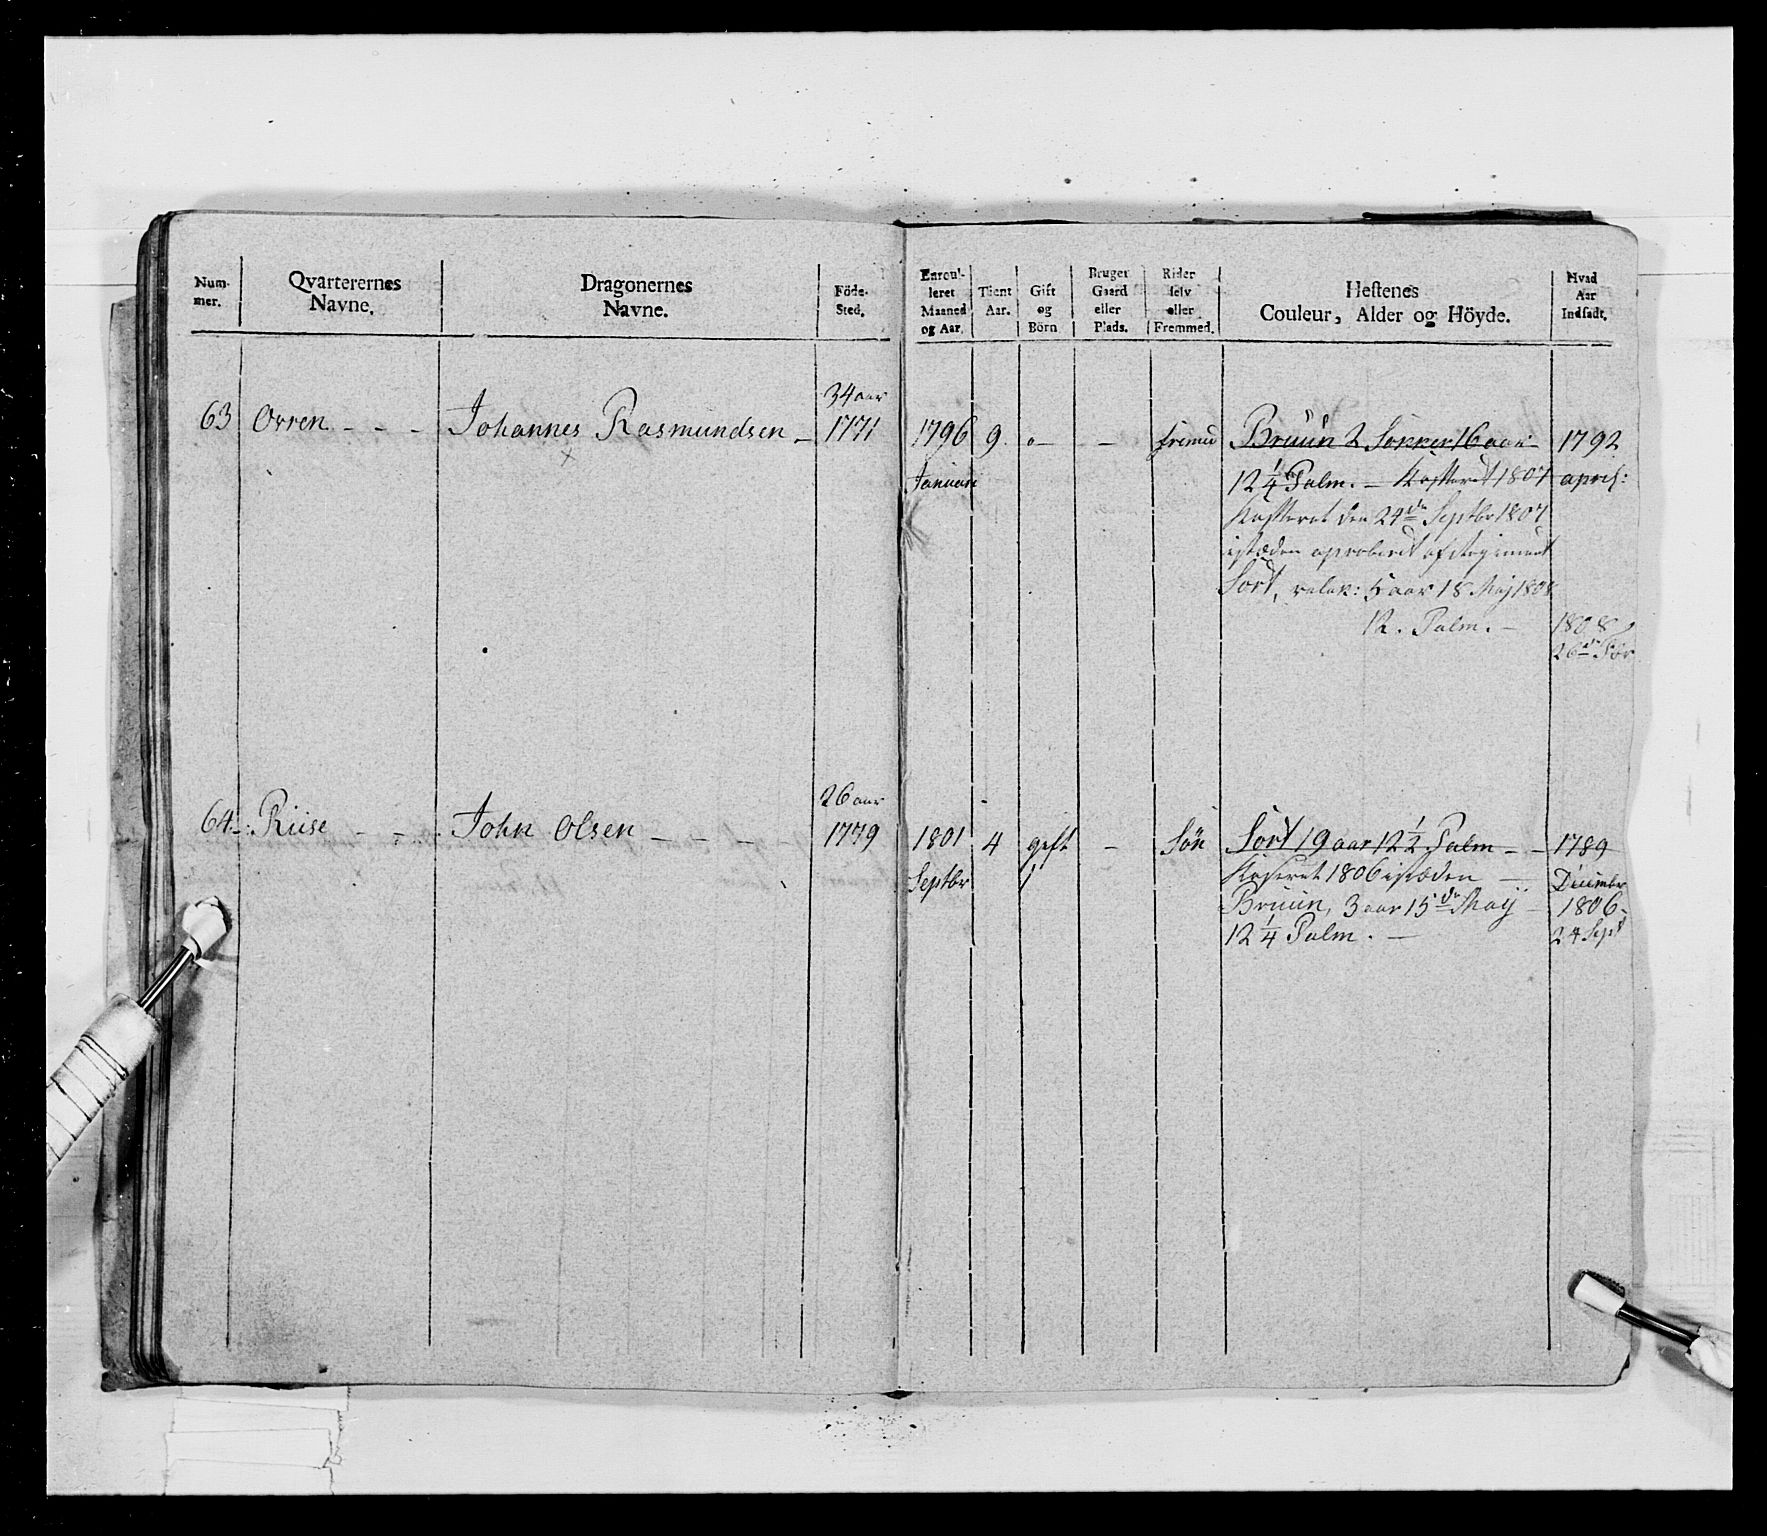 Num-
mer.
Qvarterernes
Navne.
Dragonernes
Navne.
Föde-
Sted.
Enroul-
leret
Maaned
og Aar.
Tient
Aar.
Gift
og
Börn
Bruger
Gaard
eller
Plads.
Rider
selv
eller
Fremmed.
Hestenes
Couleur, Alder og Höyde.
Hvad
Aar
Indsadt.
34 aar
63 Orren - - - Johannes Rasmundsen - 1771 1796 9. o- - fremd Bruun 2 Sokker 16 aar 1792
x
Januari 12 1/4 Palm. - Kasseret 1807 april:
Kasseret den 24de Septbr 1807
istæden aproberet af Regiment
Sort, 5 aar 18 Maj 1808
12. Palm. - 1808
26de
26 aar
64 -: Riise - - . John Olsen - - - 1779 1801 4 gift - Søn Sort 19 aar 12 1/2 Palm - - 1789
Septbr / Kaseret 1806 istæden - Decimbr
Bruun, 3 aar 15de Maij - 1806-
12 1/4 Palm. - 24 Sept